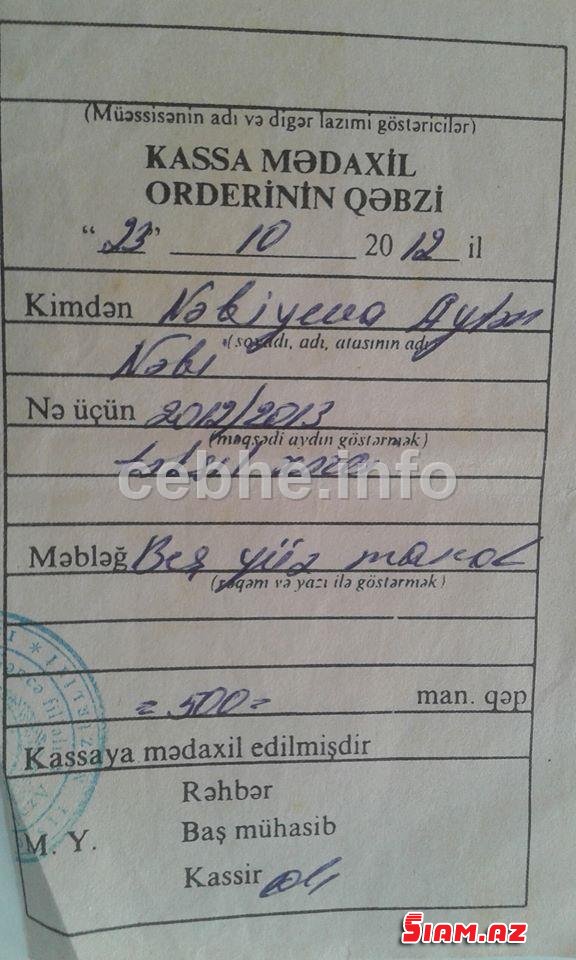 (Müəssisənin adı və digər lazımi göstəricilər)
KASSA MƏDAXİL
ORDERİNİN QƏBZİ
“23” 10 2012 il
Kimdən Nəbiyeva Aytən
(soyadı, adı, atasının adı)
Nəbi
Nə üçün 2012/2013
(məqsədi aydın göstərmək)
təhsil
cebhe.info
Məbləğ Beş yüz manat
(rəqəm və yazı ilə göstərmək)
= 500 = man. qəp
Kassaya mədaxil edilmişdir
Rəhbər
M. Y. Baş mühasib
Kassir
SIAM.AZ